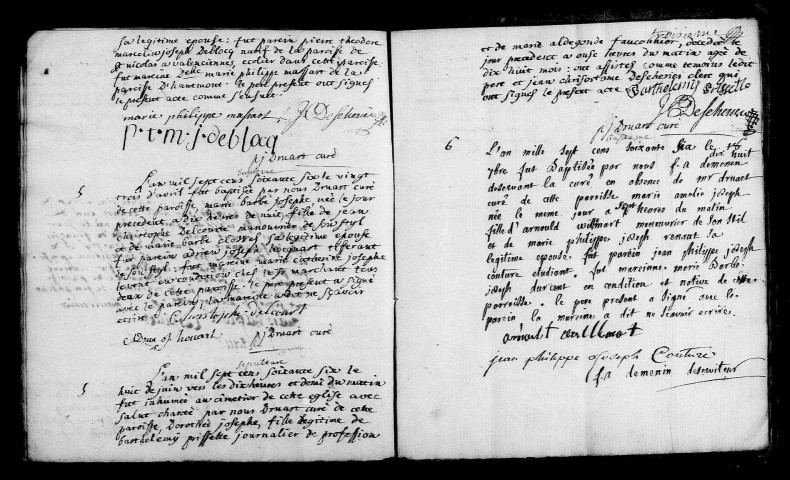 sa legitime epouse: fut parein pierre theodore
marcel joseph Deblocq natif de la paroise de
st nicolas a valenciennes, ecolier dans cette paroise
fut mareine Delle marie philippe massart de la
paroise D'hautmont. le pere present ont signés
le present acte comme s'ensuit.
marie philippe J Descheriez
p.t.m.j.deblocq
pj Druart curé
baptesme
5 L'an mil sept cens soixante six le vingt
trois d'avril fut baptisée par nous Druart curé
de cette paroisse, marie barbe josephe née le jour
precedent a dix heures de nuit, fille de jean
christophe Delcourte manouvrier de son styl
et de marie barbe sa legitime epouse
fut parein adrien joseph hecquart tisserant
de son styl: fut mareine marie catherine josephe
levent en condition chez le sr marchant tous
deux de cette paroisse. le pere present a signé
avec le parein, la mareine a dit ne sçavoir
ecrire. Christophe Delcourt
pj Druart curé
sepulture
5 L'an mil sept cens soixante six le
huit de juin vers les dix heures et demi du matin
fut inhumée au cimetier de cette eglise avec
salut chanté par nous Druart curé de cette
paroisse, Dorothée josephe, fille legitime de
barthelemy prissette journalier de profession
troisieme
et de marie aldegonde fauconnier, decedée le
jour precedent a onze heures du matin agée de
dix huit mois: ont assistés comme temoins ledit
pere et jean chrisostome Descheriez clerc qui
ont signés le present acte Barthelemis Prisette
J Descheriez
pj Druart curé
baptesme
6 L'an mille sept cens soixante six le 18
dix huit
7bre fut Baptisée par nous f.a demenin
deservant la cure en absence de mr druart
curé de cette paroisse marie amelie joseph
née le meme jour a sept heures du matin
fille d'arnould willmart menouvrier de son stil
et de marie philippe joseph renaut sa
legitime epouse. fut parein jean philippe joseph
couture etudiant. fut mareinne marie Barbe
joseph durcont en condition et native de cette
parroisse. le pere present a signé avec le
parein la mareine a dit ne scavoir ecrire.
arnout
jean philippe joseph Couture
f.a demenin deserviteur